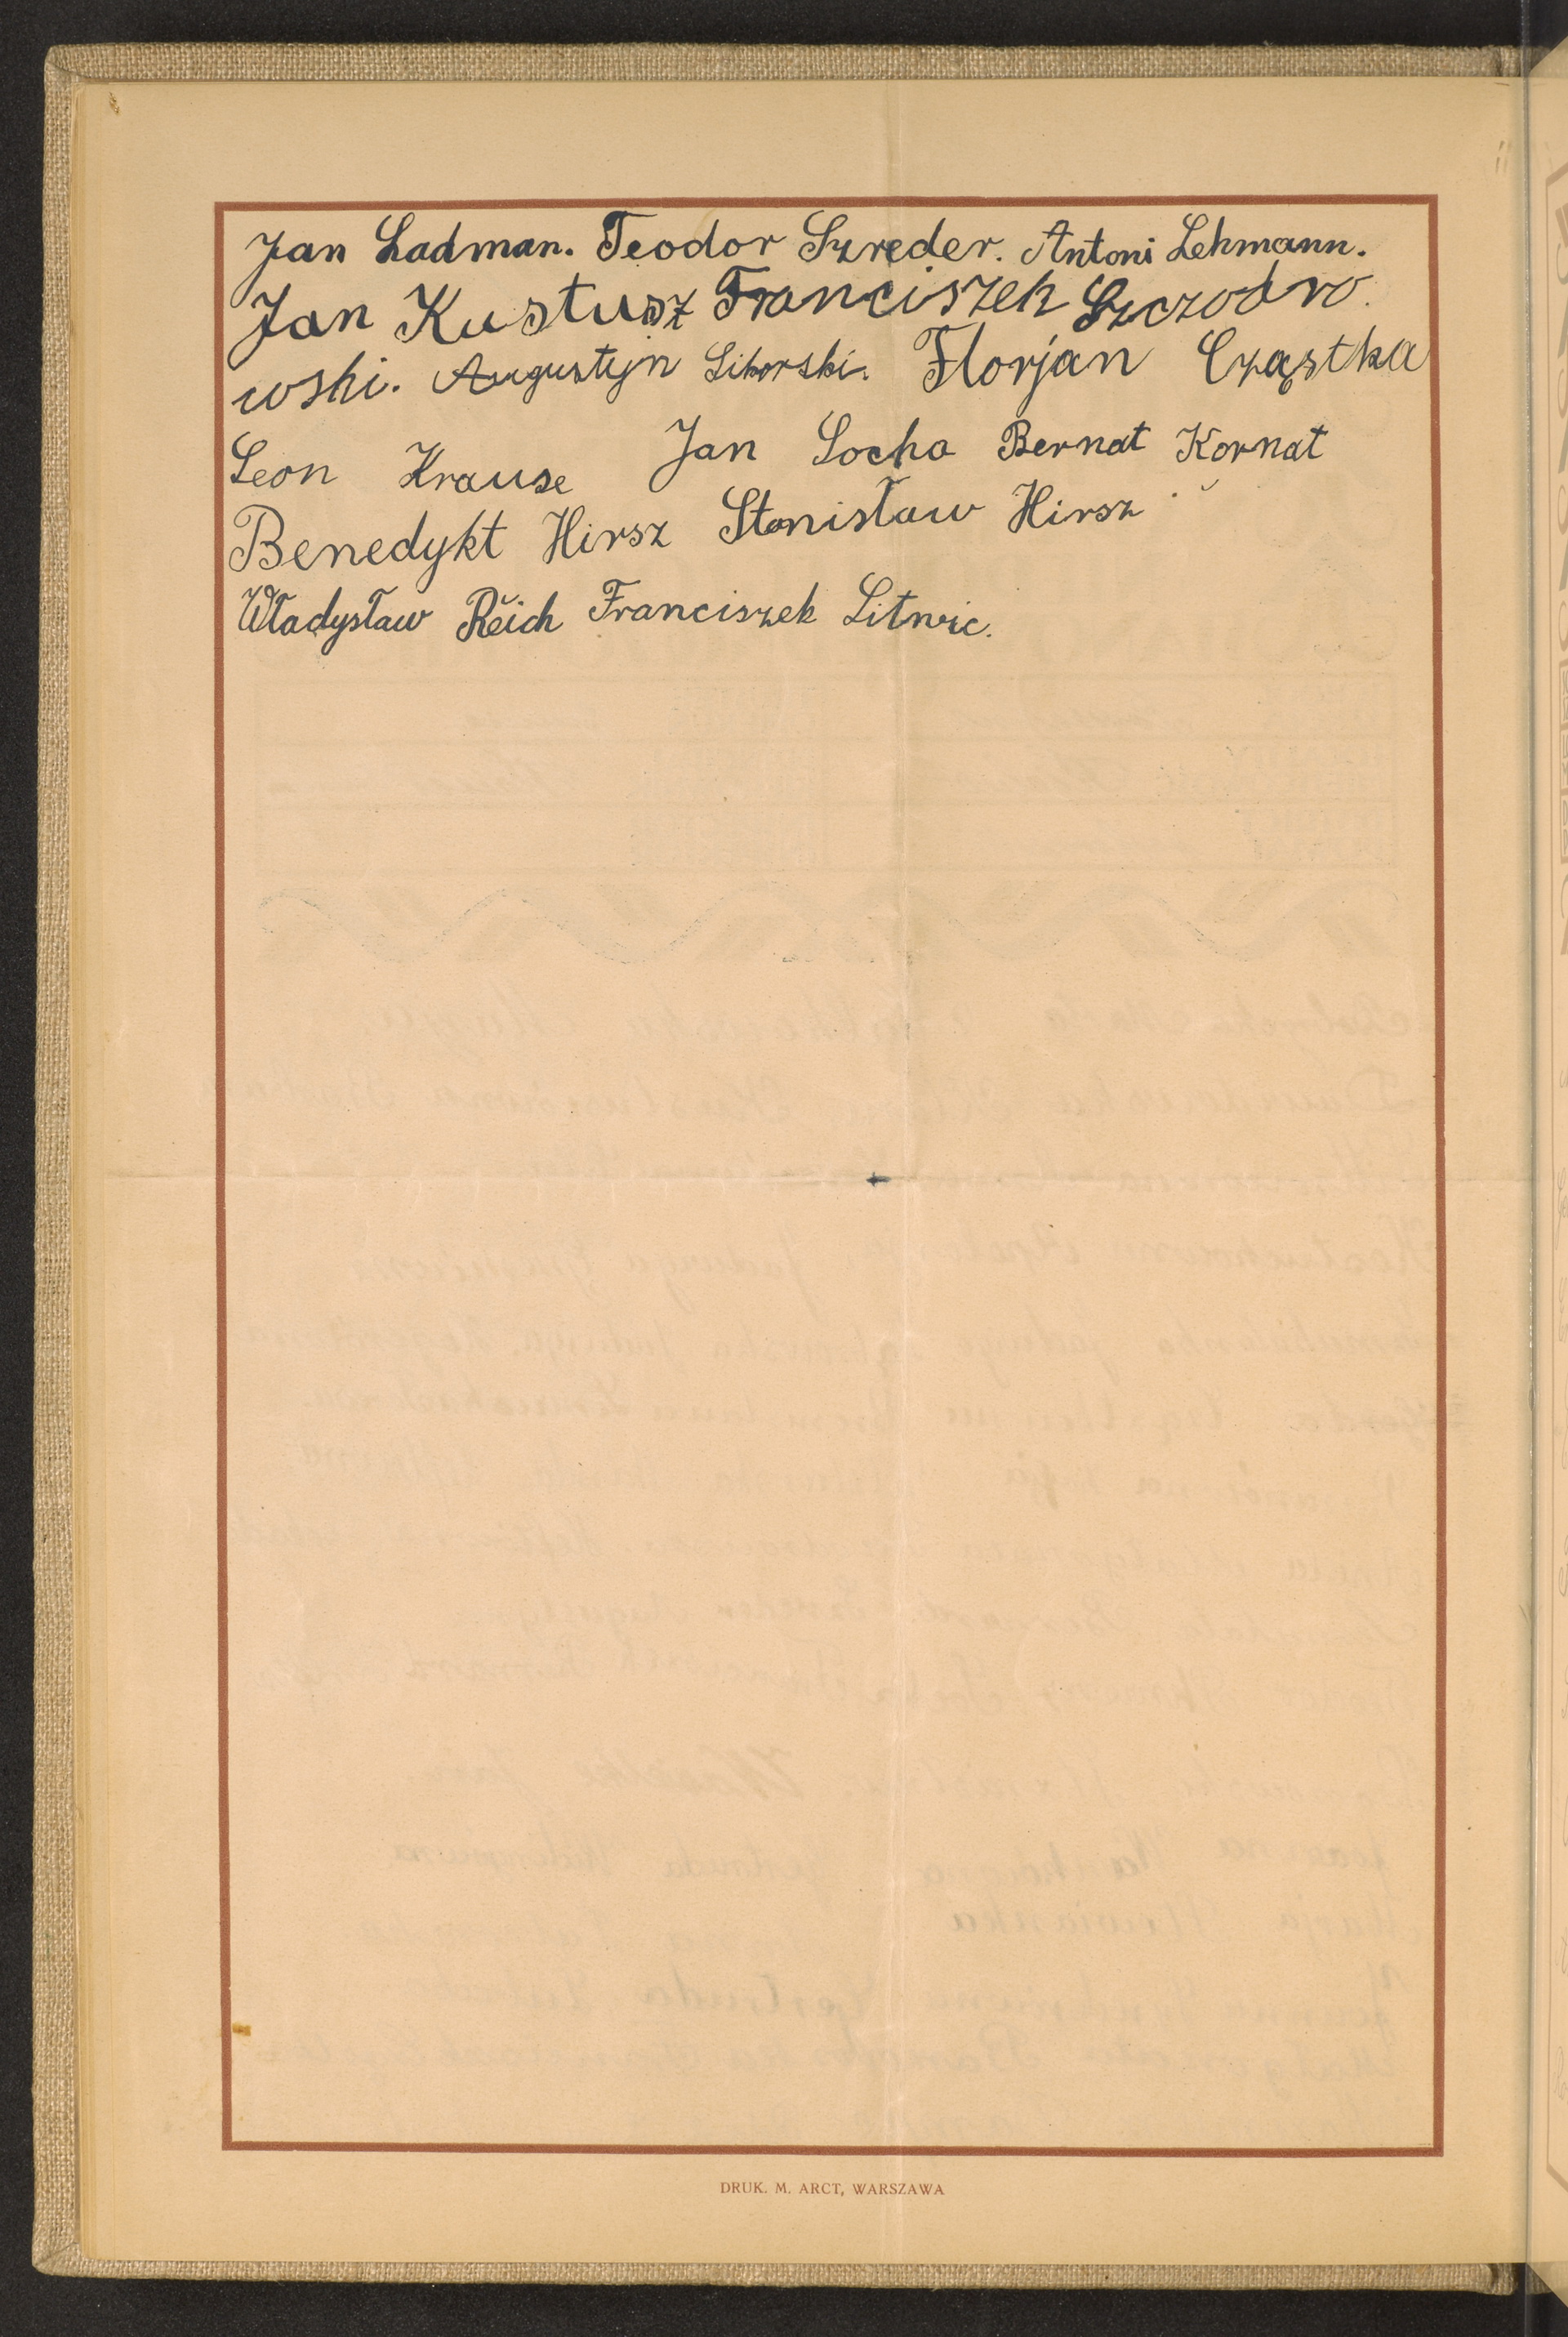 Jan Ladman. Teodor Szreder. Antoni Lehmann.
Jan Kustusz Franciszek Szczodro
wski. Augustyn Liborski. Florjan Cząstka
Leon Krause Jan Socha Bernat Kornat
Benedykt Hirsz Stanisław Hirsz
Władysław Reich Franciszek Litwic.
DRUK. M. ARCT, WARSZAWA